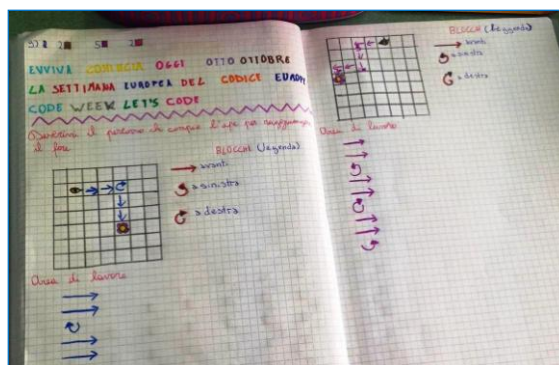 EVVIVA COMINCIA OGGI OTTO OTTOBRE
LA SETTIMANA EUROPEA DEL CODICE EUROPE
CODE WEEK LET'S CODE
Descrivi il percorso che compie l'ape per raggiungere
il fiore
BLOCCHI (Legenda)
avanti
a sinistra
a destra
Area di lavoro
BLOCCHI (Leggenda)
avanti
a sinistra
a destra
Area di lavoro